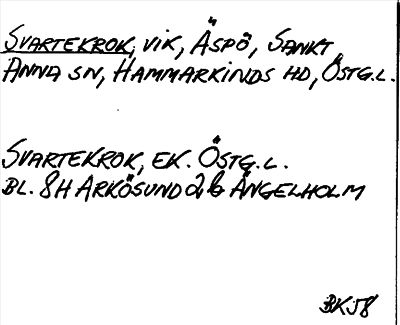 SVARTEKROK, VIK, ÄSPÖ, SANKT
ANNA SN, HAMMARKINDS HD, ÖSTG.L.
SVARTEKROK, EK. ÖSTG.L.
BL. 8H ARKÖSUND 2 b ÄNGELHOLM
BKJ8